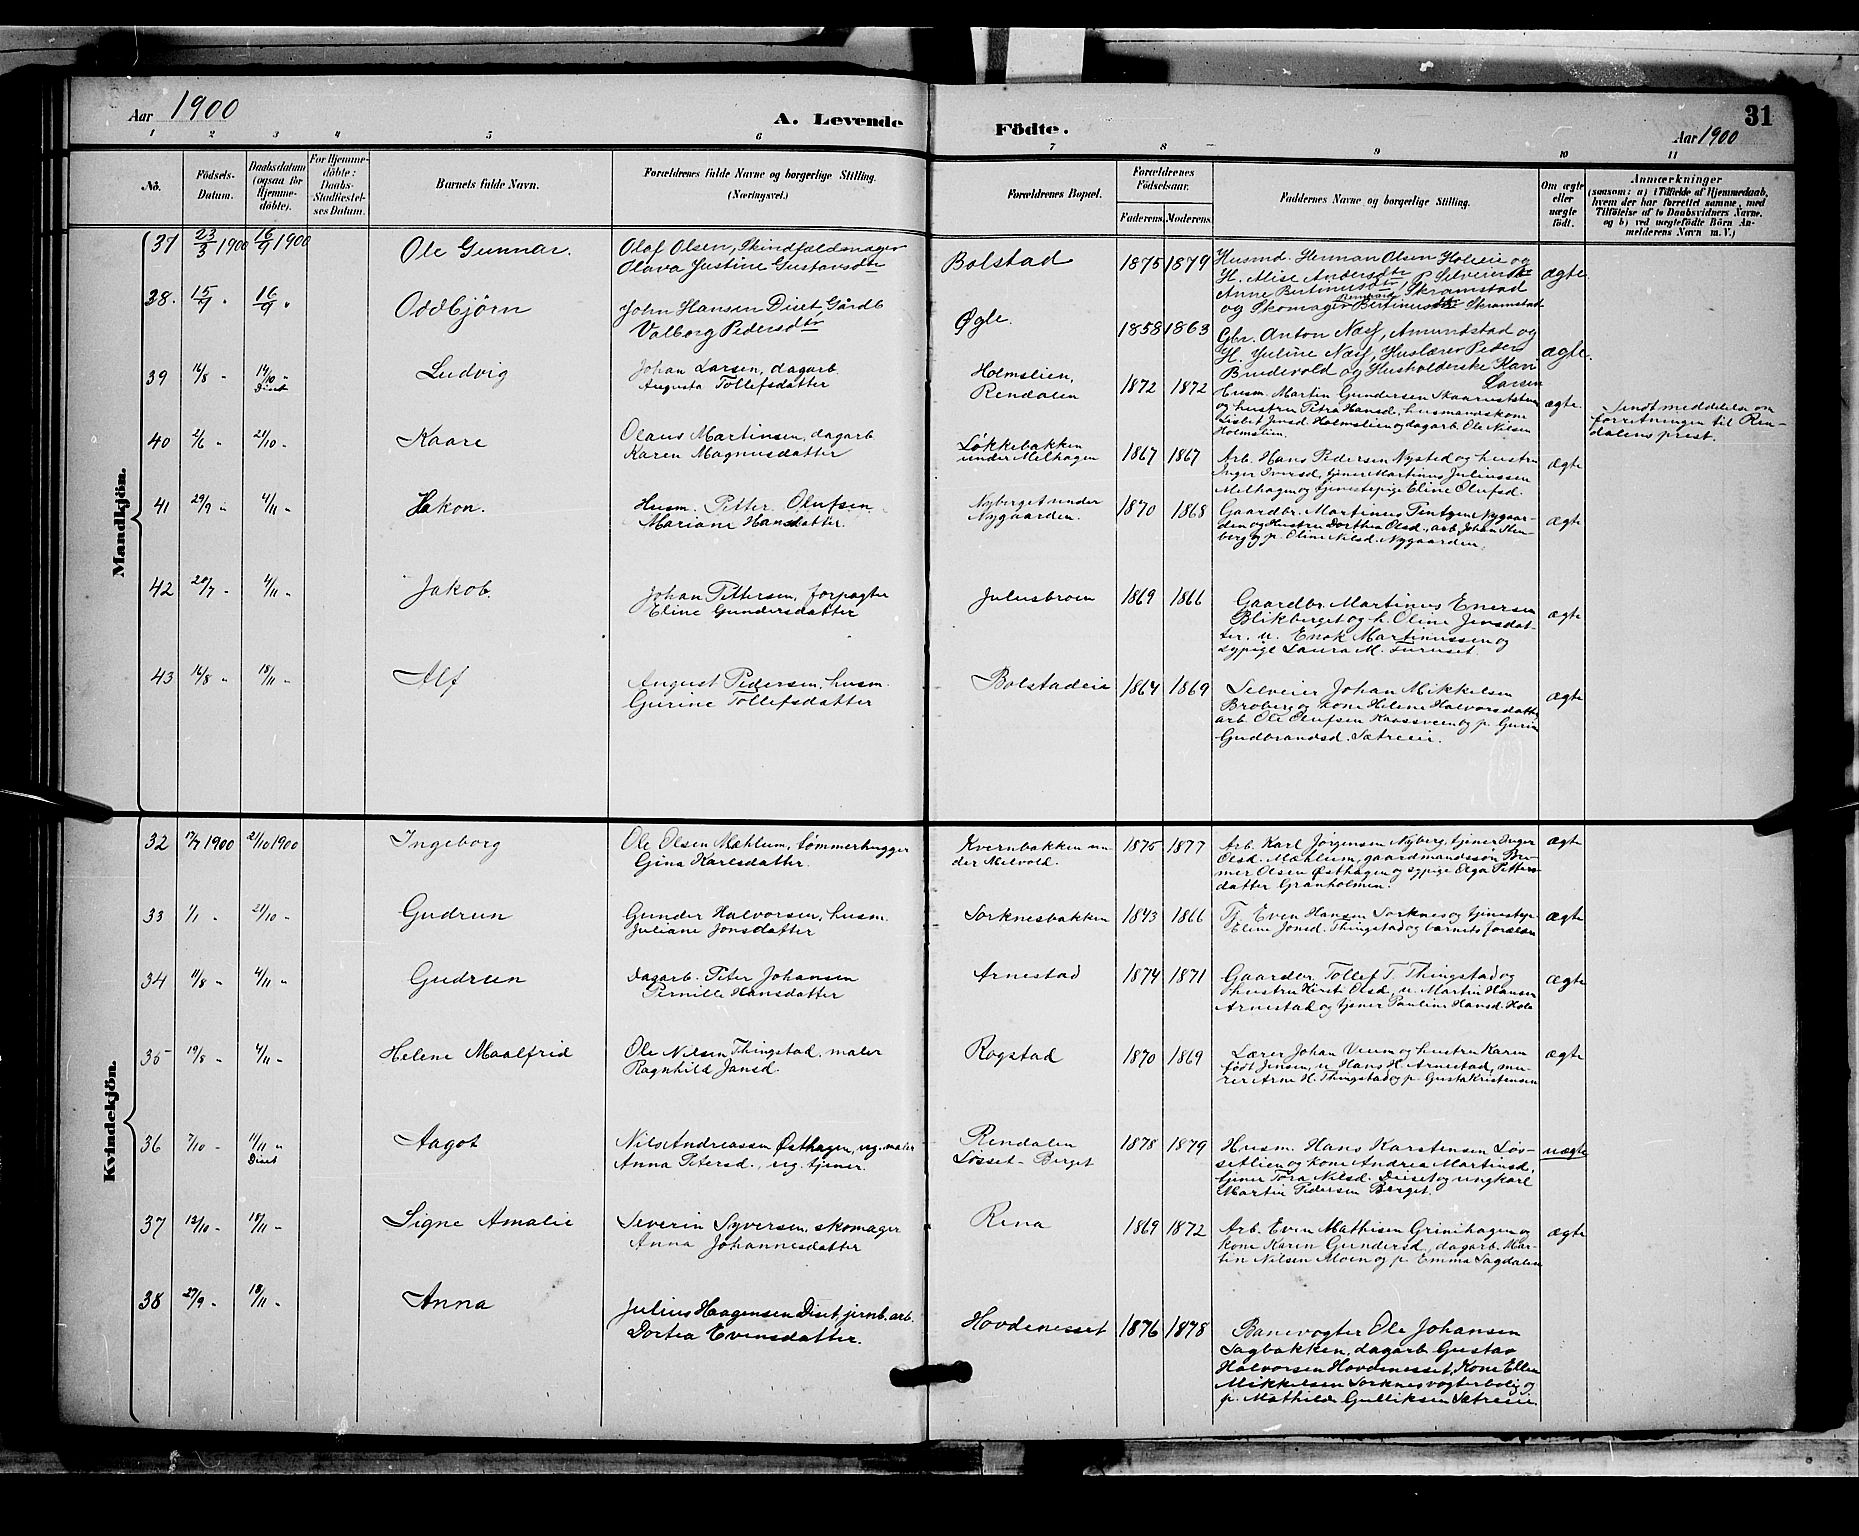 31
Aar 1900
A. Levende
Födte.
Aar 1900
1 2 3 4 5 6 7 8 9 10 11
No.
Födsels-
Datum.
Daabsdatum
(ogsaa for
Hjemme-
döbte).
For Hjemme-
döbte:
Daabs-
Stadfæstel-
ses Datum.
Barnets fulde Navn.
Forældrenes fulde Navne og borgerlige Stilling.
(Næringsvei.)
Forældrenes Bopæl.
Forældrenes
Födselsaar.
Faderens. Moderens.
Faddernes Navne og borgerlige Stilling.
Om ægte
eller
uægte
födt.
Anmærkninger
(saasom: a) i Tilfælde af Hjemmedaab,
hvem der har forrettet samme, med
Tilföielse af to Daabsvidners Navne,
og b) ved uegtefödte Börn An-
melderens Navn m. V.)
Mandkjön.
37 23/3 1900 16/9 1900 Ole Gunnar.
Olaf Olsen, Skindfældmager
Olava Justine Gustavsdtr
Bolstad 1875 1879
Husmd. Herman Olsen Holeie og
H. Alise Andersdtr, P. Selveiersdtr
Anne Bertinusdtr Skramstad
og Skomager Bertinus Skramstad
ægte
38. 15/7 " 16/9 " Oddbjörn
John Hansen Diset, Gårdb
Valborg Pedersdtr
Øgle. 1858 1863
Gbr. Anton Næss, Amundstad og
H. Juline Næss, Huslærer Peder
Brudevold og Husholderske Kari
Larsen
ægte.
39 16/8 - 14/10 - Diset Ludvig
Johan Larsen, dagarb.
Augusta Tollefsdatter
Holmslien,
Rendalen 1872 1872
Husm. Martin Gundersen
og hustru Petra Hansd., husmandskone
Lisbet Jensd. Holmslien og dagarb. Ole Nilsen
Holmslien.
ægte.
Sendt meddelelse om
forretningen til Ren-
dalens prest.
40 2/6 - 21/10 - Kaare
Olaus Martinsen, dagarb
Karen Magnusdatter
Løkkebakken
under Melhagen 1867 1867
Arb. Hans Pedersen Nysted og hustru
Inger Iversd., tjener Martinus Juliussen
Melhagen og tjenestepige Eline Olufsd.
ægte
41 29/9 - 4/11 - Håkon.
Husm. Petter Olufsen
Mariane Hansdatter.
Nyberget under
Nygaarden. 1870 1868
Gaardbr. Martinus Nygaar-
den og Hustru Dorthea Olsd., arb. Johan
berg og p. Oline Nilsd. Nygaarden.
ægte
42 20/7 - 4/11 - Jakob.
Johan Pettersen, forpagter
Eline Gundersdatter
Julusbroen 1869 1866
Gaardbr. Martinus Enersen
Blikberget og h. Oline Jensdat-
ter. u. Enok Martinussen og
sypige Laura M. Furuset.
ægte
43 16/8 - 18/11 - Alf
August Pedersen, husm.
Gurine Tollefsdatter
Bolstadeie 1864 1869
Selveier Johan Mikkelsen
Broberg og kone Helene Halvorsdatter
arb. Ole Olufsen Kaasveen og p. Gurine
Gudbrandsd. Sætreeie.
ægte
Kvindekjön.
32 17/7 1900 21/10 1900 Ingeborg
Ole Olsen Mæhlum, tømmerhugger
Gina Karlsdatter.
Kvernbakken un
der Melvold. 1875 1877
Arb. Karl Jørgensen Nyberg, tjener Inger
Olsd. Mæhlum, gaardmandssøn
mer Olsen Østhagen og sypige Olga Petters
datter Granholmen.
ægte
33 1/1 - 21/10 - Gudrun
Gunder Halvorsen, husm.
Juliane Jonsdatter
Sorknesbakken 1843 1866
Tj. Even Hansen Sorknes og tjenestep.
Eline Jonsd. Thingstad og barnets forældre
ægte
34 11/8 - 4/11 - Gudrun
Dagarb. Peter Johansen
Pernille Hansdatter
Arnestad 1874 1871
Gaardbr. Tollef T. Thingstad og
hustru Kirsti Olsd., u. Martin Hansen
Arnestad og tjener Pauline Hansd. Hole
ægte
35 19/8 - 4/11 - Helene Maalfrid
Ole Nilsen Thingstad, maler
Ragnhild Jansd.
Rogstad 1870 1869
Lærer Johan Veum og hustru Karen
født Jensen, u. Hans H. Arnestad, mu-
rer Arne H. Thingstad og p. Gusta Kristensen
ægte
36 7/10 - 11/11 " Diset Aagot
Nils Andreassen Østhagen, ug. maler
Anna Petersd., ug. tjener.
Rendalen
Løsset-Berget 1878 1879
Husm. Hans Karstensen Løs-
setlien og kone Andrea Martinsd.
tjener Tora Nilsd. Diset og ungkarl
Martin Pedersen Berget.
uægte
37 12/10 - 18/11 - Signe Amalie
Severin Syversen, skomager
Anna Johannesdatter
Rena 1869 1872
Arb. Even Mathisen Grinihagen og
kone Karen Gundersd., dagarb. Mar-
tin Nilsen Moen og p. Emma Sagdalen
ægte
38 27/9 - 18/11 - Anna
Julius Haagensen Diset, jernb. arb.
Dortea Evensdatter.
Hovdenesset 1876 1878
Banevogter Ole Johansen
Sagbakken, dagarb. Gustav
Halvorsen Hovdenesset, Kone Ellen
Mikkelsen Sorknes vogterbolig og
p. Mathilde Gulliksen Sætreeie